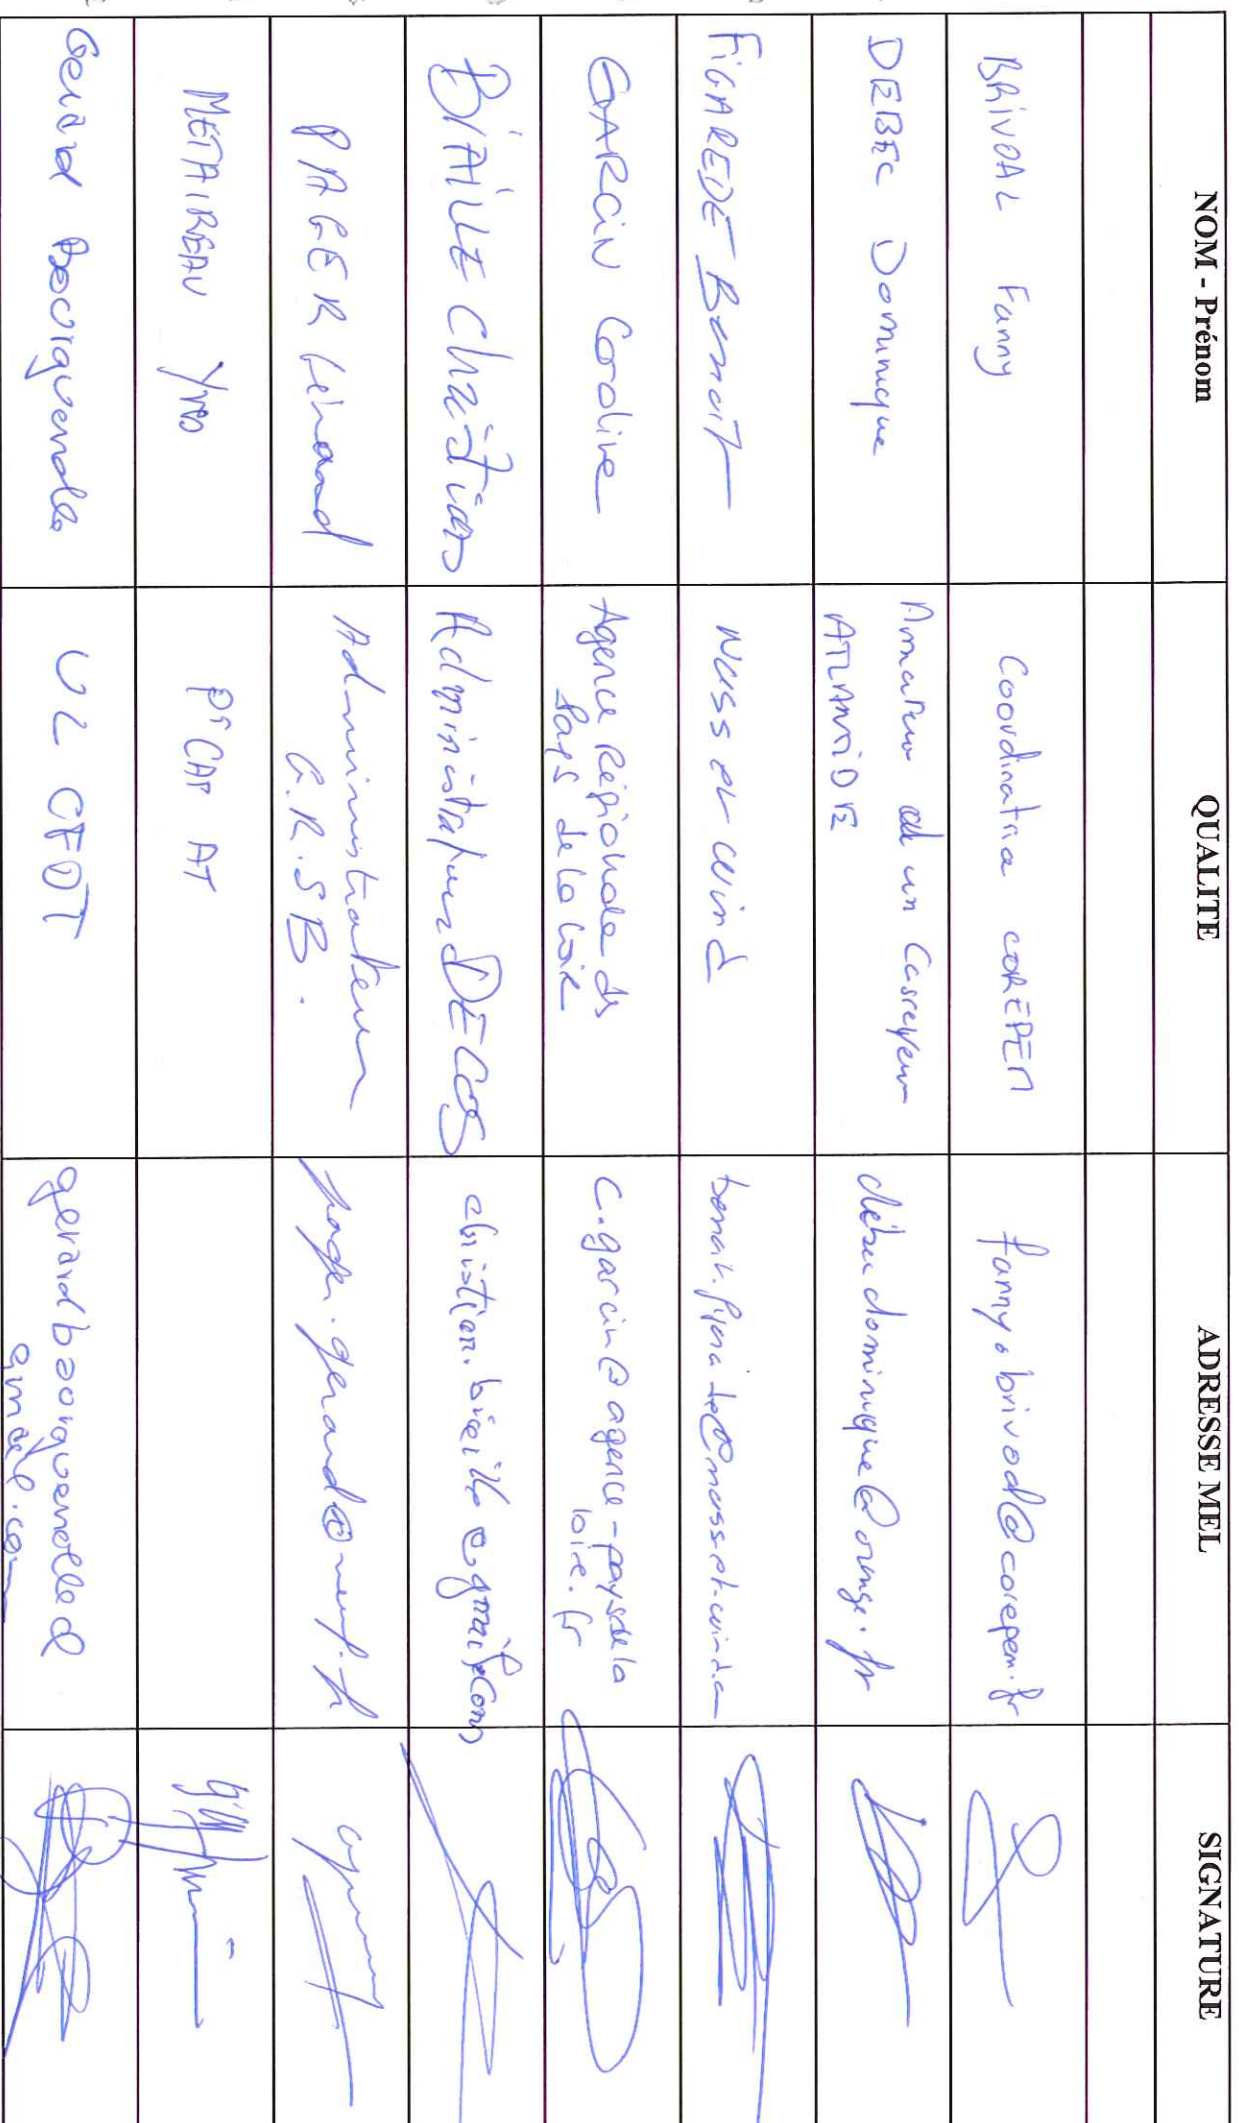 NOM - Prénom QUALITE ADRESSE MEL SIGNATURE
BRIVOAL Fanny Coordinatrice COREPEM fanny.brivoal@corepem.fr
DEBEC Dominique Armateur d un Caseyeur
ATLANTIDE debecdominique@orange.fr
FIGAREDE Benoit Nass et Wind
GARCIN Coraline Agence Régionale des
Pays de la Loire c.garcin@agence-paysdela
loire.fr
BIAILLE Christian Administrateur DECOS christian.biaille@gmail.com
PAGER Gérard Administrateur
G.R.S.B. pager.gerard@neuf.fr
METAIREAU Yves Pt CAP AT
Gérard Bocquenolle UL CFDT
gmail.com